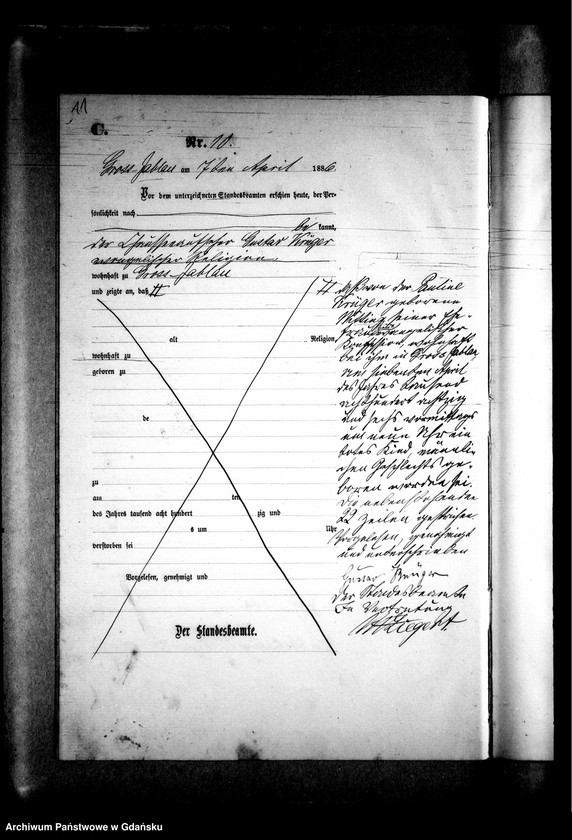 A1
C.
Nr. 10.
Gross-Jablau am 7ten April 1886.
Vor dem unterzeichneten Standesbeamten erschien heute, der Per-
sönlichkeit nach
be kannt,
der Chausseeaufseher Gustav Krüger
evangelischer Religion
wohnhaft zu Gross-Jablau
und zeigte an, daß
alt Religion,
wohnhaft zu
geboren zu
de
zu
am ten
des Jahres tausend acht hundert zig und
s um Uhr
verstorben sei
Vorgelesen, genehmigt und
Der Standesbeamte.
von der Pauline
Krüger geborene
seiner Ehe-
frau evangelischer
Konfession, wohnhaft
bei ihm in Gross Jablau
am siebenten April
des Jahres tausend
achthundert achtzig
und sechs vormittags
um neun Uhr ein
totes Kind, männli-
chen Geschlechts ge-
boren worden sei.
Die nebenstehenden
22 Zeilen gestrichen.
Vorgelesen, genehmigt
und unterschrieben
Gustav Krüger
Der Standesbeamte
In Vertretung
Archiwum Państwowe w Gdańsku